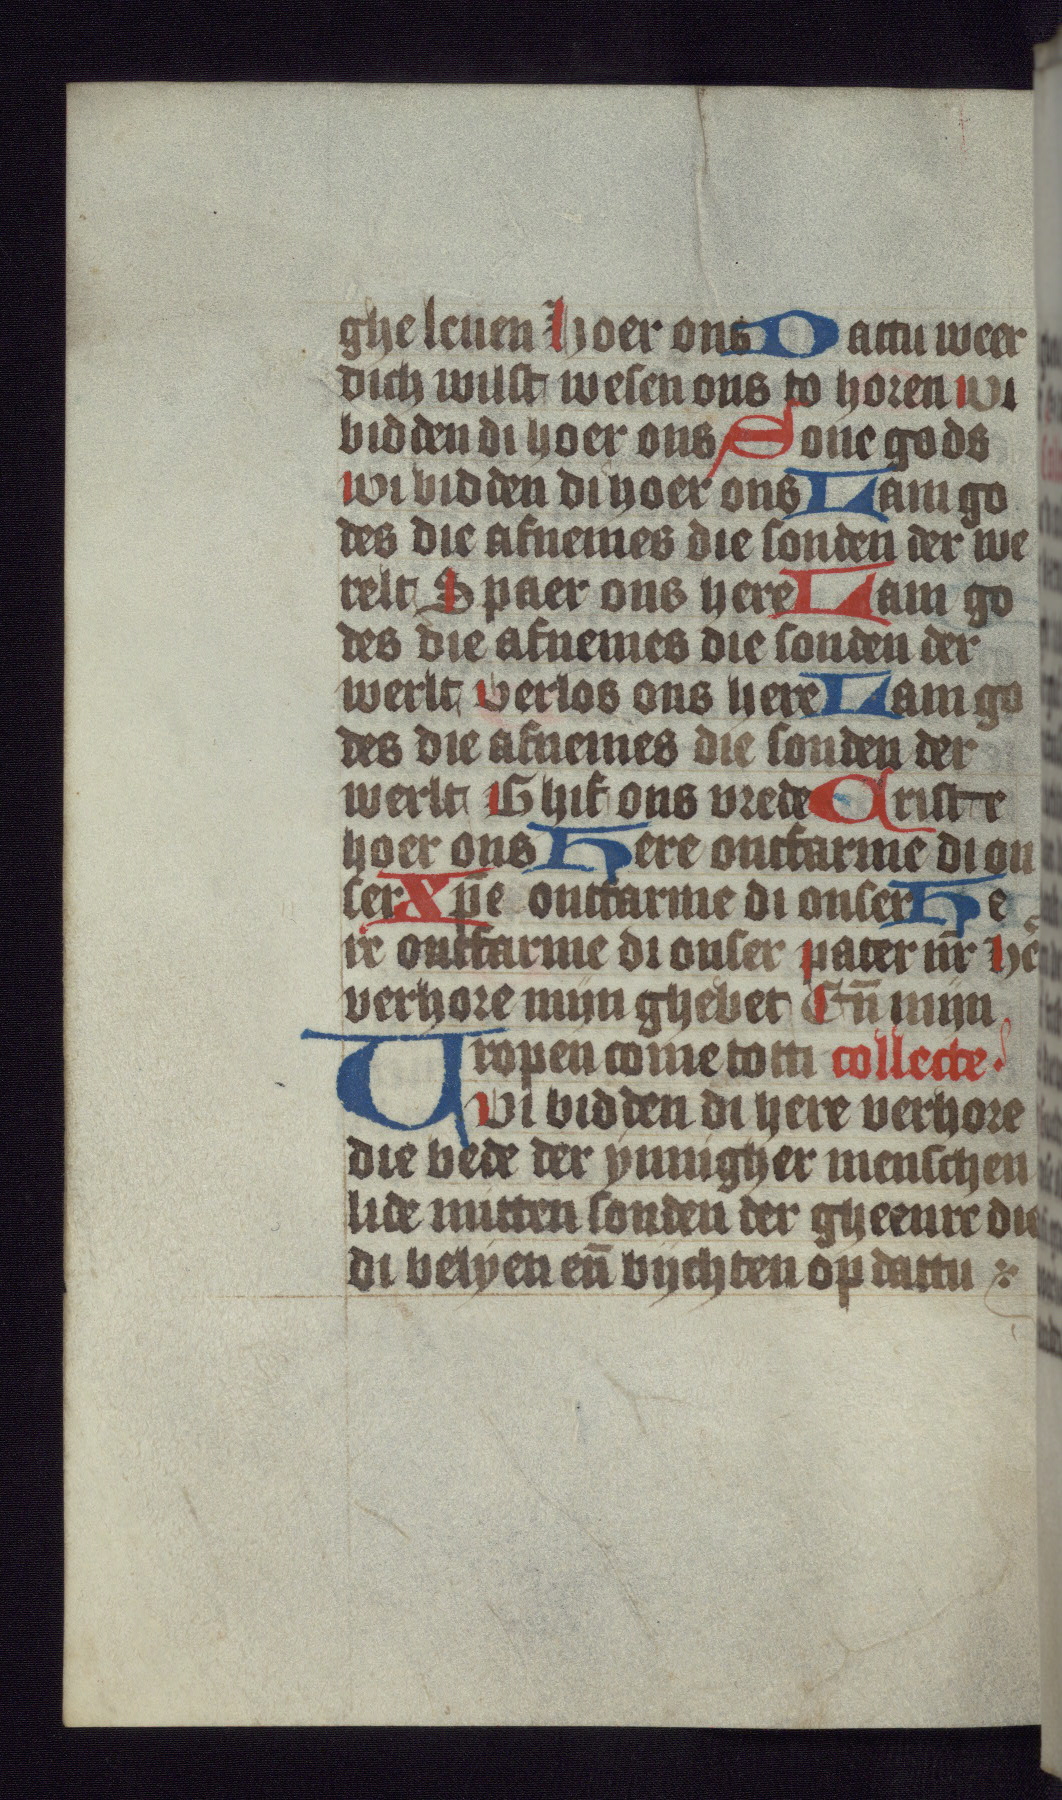 ghe leuen Hoer ons Dattu weer
dich wilst wesen ons to horen wi
bidden di hoer ons Sone gods
wi bidden di hoer ons Lam go
des die afnemes die sonden der we
relt Spaer ons here Lam go
des die afnemes die sonden der
werlt verlos ons here Lam go
des die afnemes die sonden der
werlt Ghif ons vrede Crist e
hoer ons Here ontfarme di on
ser Xpē ontfarme di onser He
re ontfarme di onser pater nr̄ He
verhore mijn ghebet Eñ mijn
ropen come totti collecte
Wi bidden di here verhore
die bede der ynnigher menschen
lide mitten sonden der gheenre die
di belyen eñ bijchten op dattu